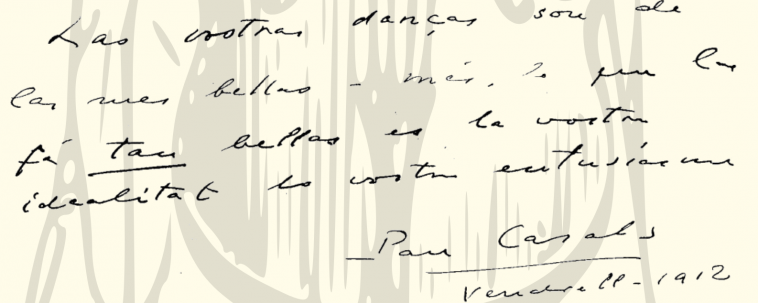 Las vostras danças son de
las mes bellas - més, lo que las
fá tan bellas es la vostra
idealitat lo vostre entusiasme
Pau Casals
Vendrell - 1912